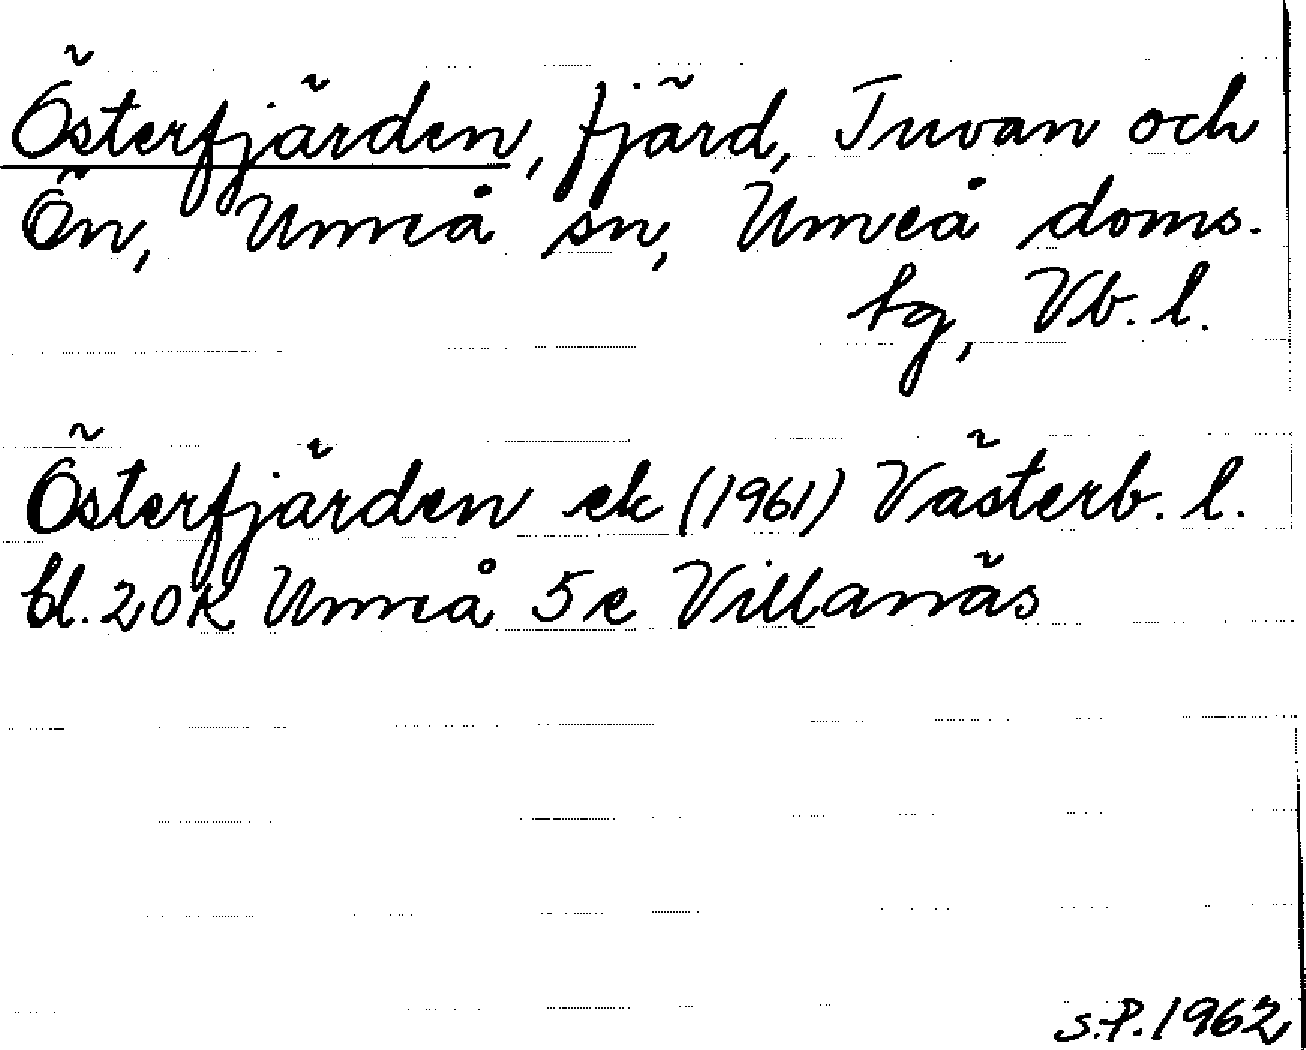 Österfjärden, fjärd, Tuvan och
Ön, Umeå sn, Umeå doms.
hg, Vb. l.
Österfjärden ek (1961) Västerb. l.
bl. 20K Umeå 5e Villanäs
S.P. 1962